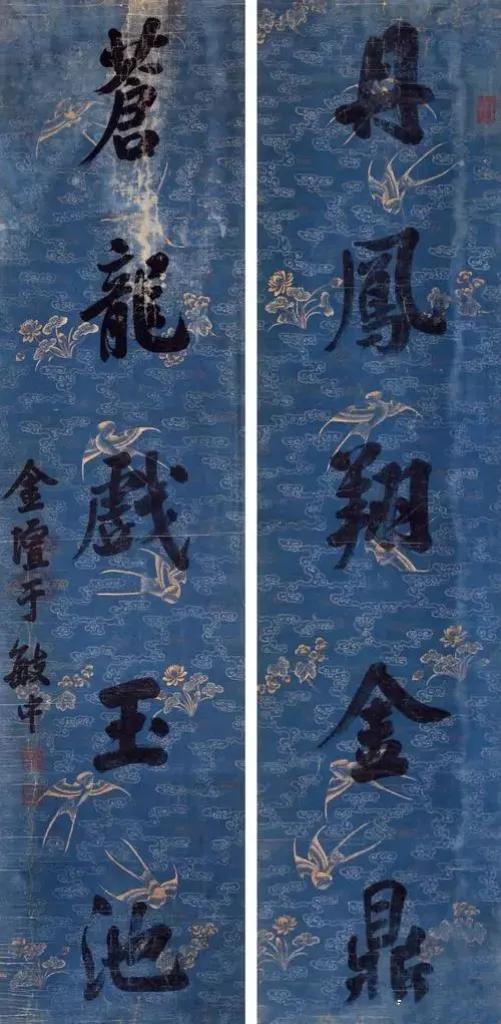 丹鳳翔金鼎
蒼龍戲玉池
金壇于敏中